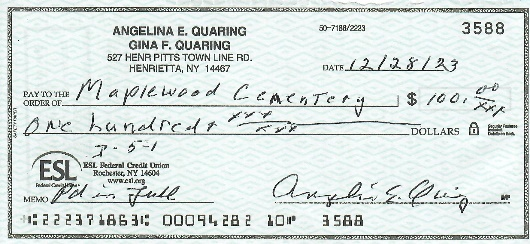 ANGELINA E. QUARING
GINA F. QUARING
527 HENR PITTS TOWN LINE RD.
HENRIETTA, NY 14467
50-7188/2223
3588
DATE 12/28/23
PAY TO THE
ORDER OF Maplewood Cementery $ 100.00/xxx
One hundred + xxx/xxx DOLLARS
3-5-1
ESL
Federal Credit Union
ESL Federal Credit Union
Rochester, NY 14604
www.esl.org
MEMO Pd in Full Angelin E. Quring
⑆222371863⑆ 00094282 10⑈ 3588